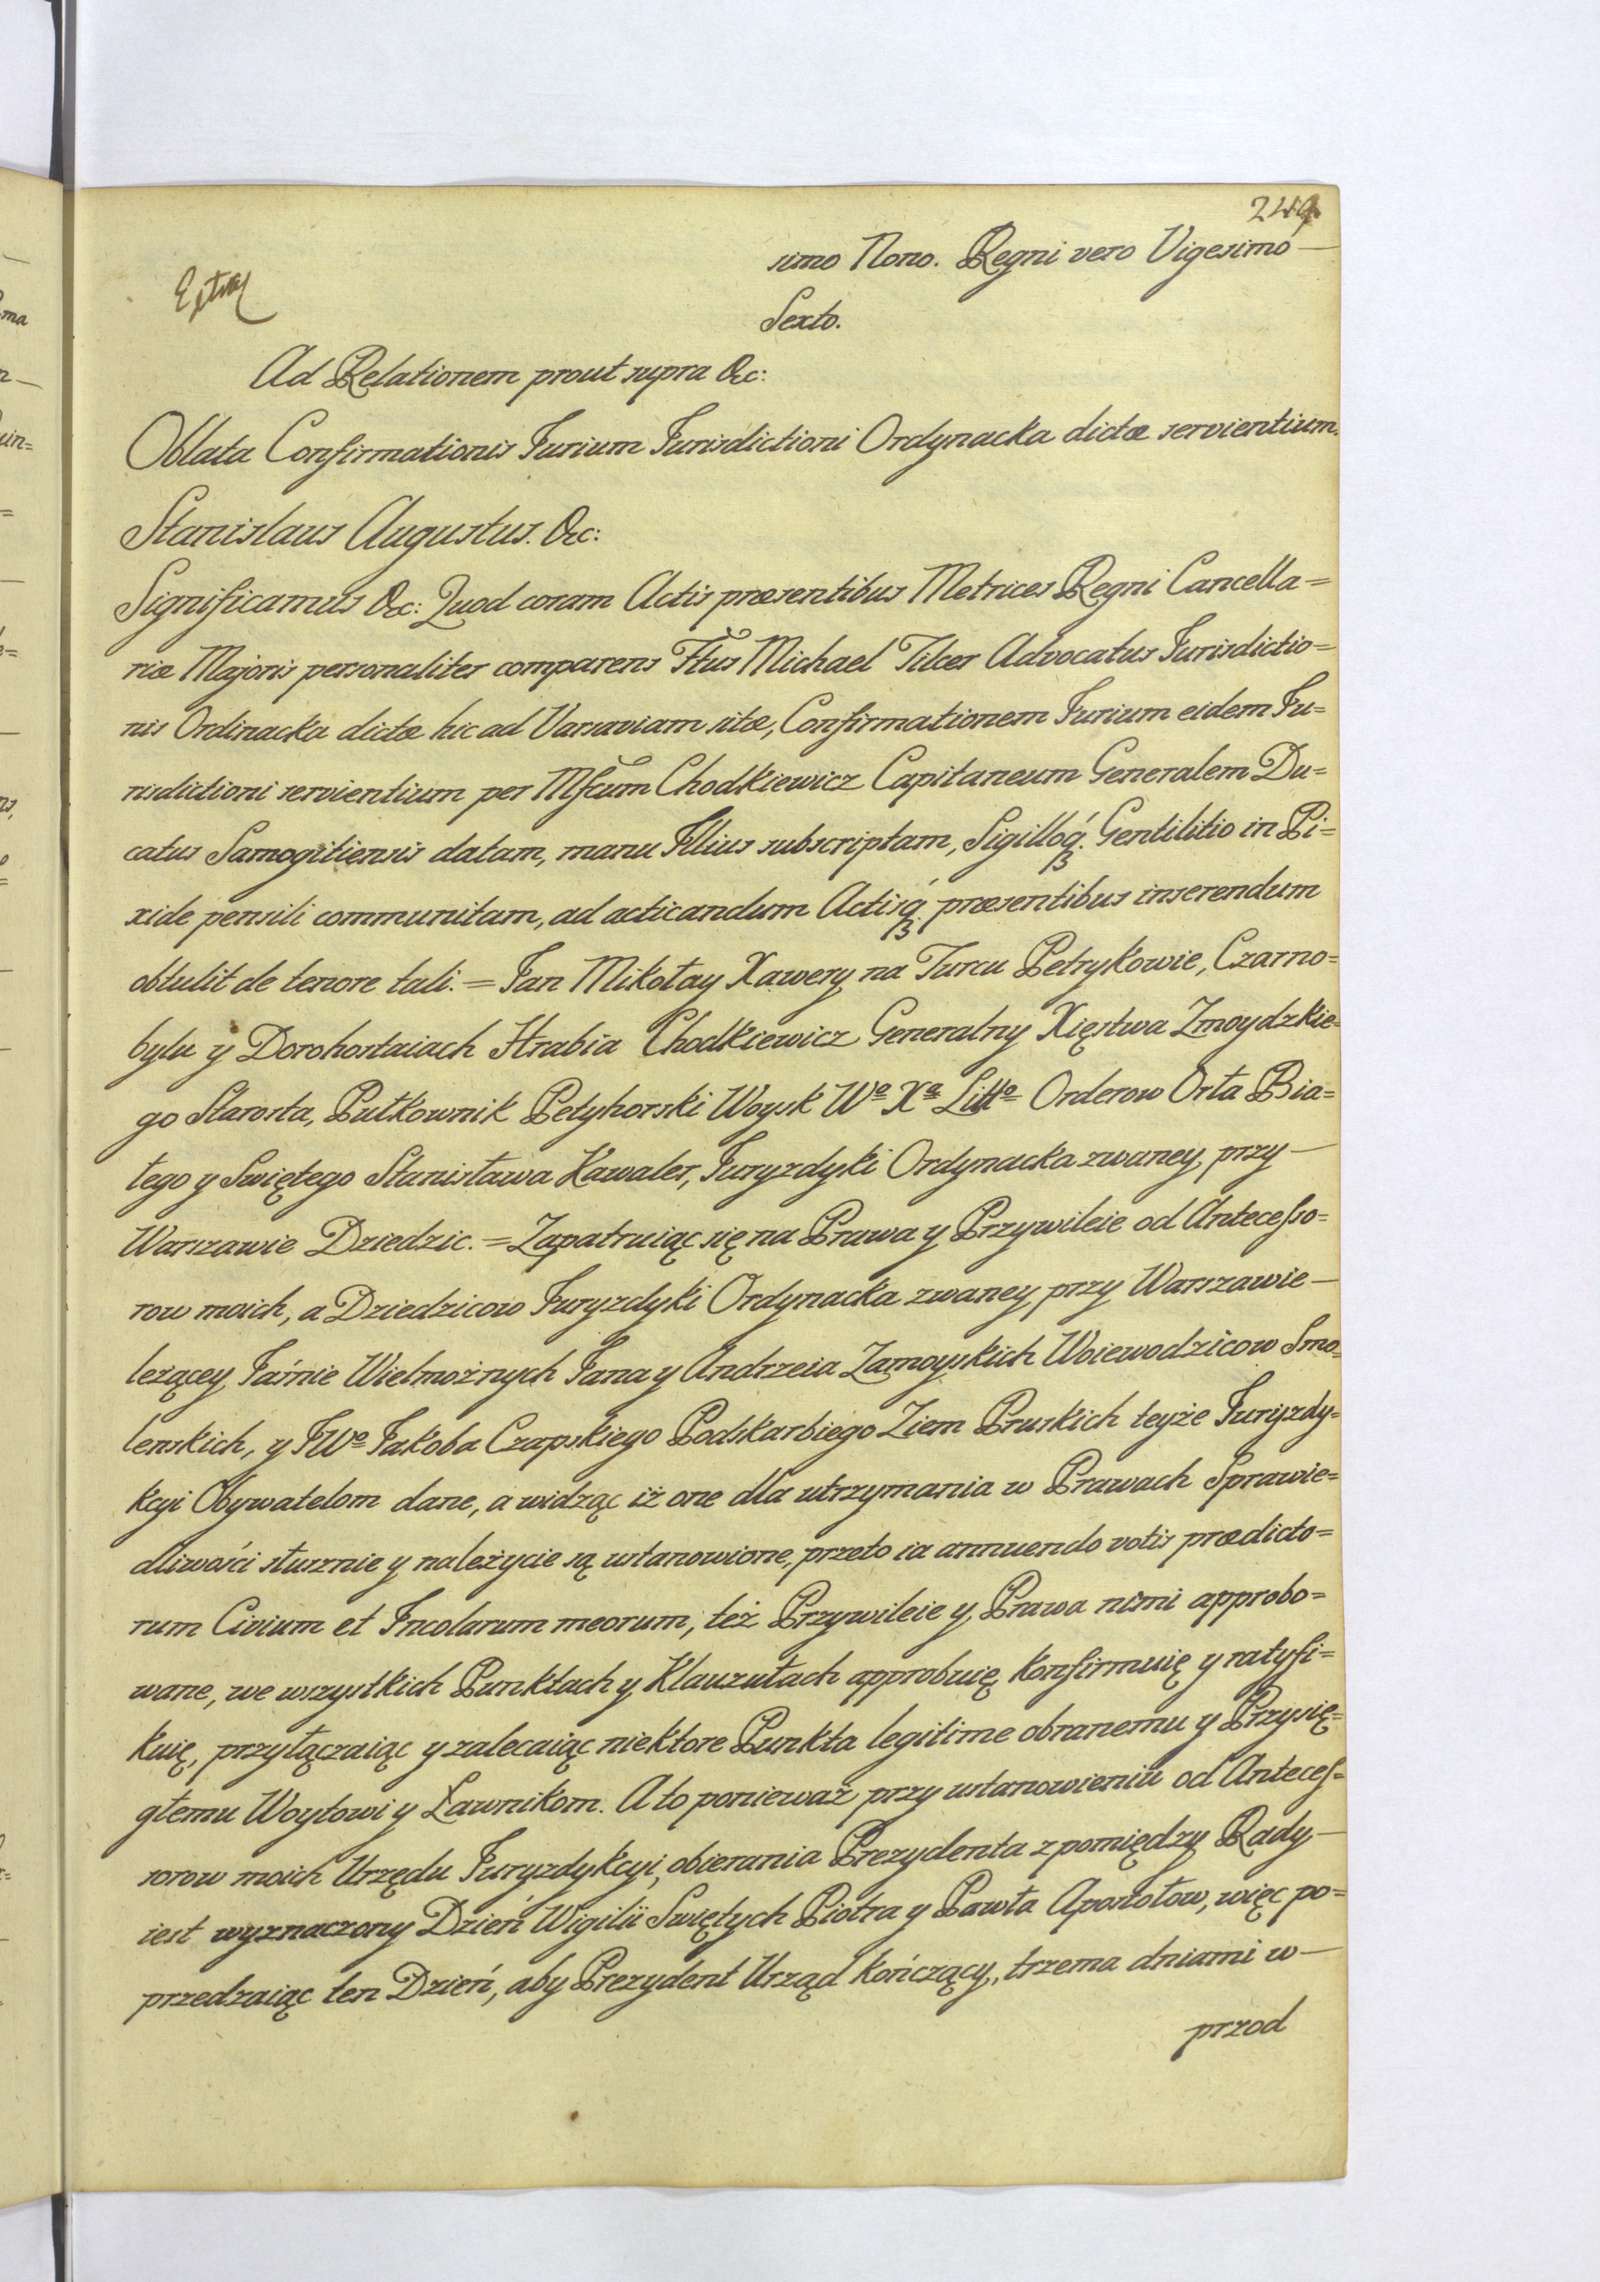 249
simo Nono. Regni vero Vigesimo —
Sexto.
Ad Relationem prout supra &c:
Oblata Confirmationis Jurium Jurisdictioni Ordynacka dictæ servientium.
Stanislaus Augustus. &c:
Significamus &c: Quod coram Actis præsentibus Metrices Regni Cancella=
riæ Majoris personaliter comparens Ftus Michael Tilcer Advocatus Jurisdictio=
nis Ordinacka dictæ hic ad Varsaviam sitæ, Confirmationem Jurium eidem Ju=
risdictioni servientium per Mfcum Chodkiewicz Capitaneum Generalem Du=
catus Samogitiensis datam, manu Illius subscriptam, Sigilloq. Gentilitio in Pi=
xide pensili communitam, ad acticandum Actisq. præsentibus inserendum
obtulit de tenore tali. = Jan Mikołay Xawery na Turcu Petrykowie, Czarno=
bylu y Dorohostaiach Hrabia Chodkiewicz Generalny Xięstwa Zmoydzkie=
go Starosta, Pułkownik Petyhorski Woysk Wo Xa Litto Orderow Orła Bia=
łego y Swiętego Stanisława Kawaler, Juryzdyki Ordynacka zwaney, przy —
Warszawie Dziedzic. = Zapatruiąc się na Prawa y Przywileie od Antecesso=
row moich, a Dziedzicow Juryzdyki Ordynacka zwaney, przy Warszawie —
leżącey, Jaśnie Wielmożnych Jana y Andrzeia Zamoyskich Woiewodzicow Smo=
lenskich, y JWo Jakoba Czapskiego Podskarbiego Ziem Pruskich teyże Juryzdy=
kcyi Obywatelom dane, a widząc iż one dla utrzymania w Prawach Sprawie=
dliwości słusznie y należycie są ustanowione, przeto ia annuendo votis prædicto=
rum Civium et Incolarum meorum, też Przywileie y Prawa nimi approbo=
wane, we wszystkich Punktach y Klauzułach approbuię, konfirmuię y ratyfi=
kuię, przyłączaiąc y zalecaiąc niektore Punkta legitime obranemu y Przysię=
głemu Woytowi y Ławnikom. A to ponieważ przy ustanowieniu od Anteces=
sorow moich Urzędu Juryzdykcyi, obierania Prezydenta z pomiędzy Rady —
iest wyznaczony Dzień Wigilii Swiętych Piotra y Pawła Apostołow, więc po=
przedzaiąc ten Dzień, aby Prezydent Urząd kończący, trzema dniami w —
przod